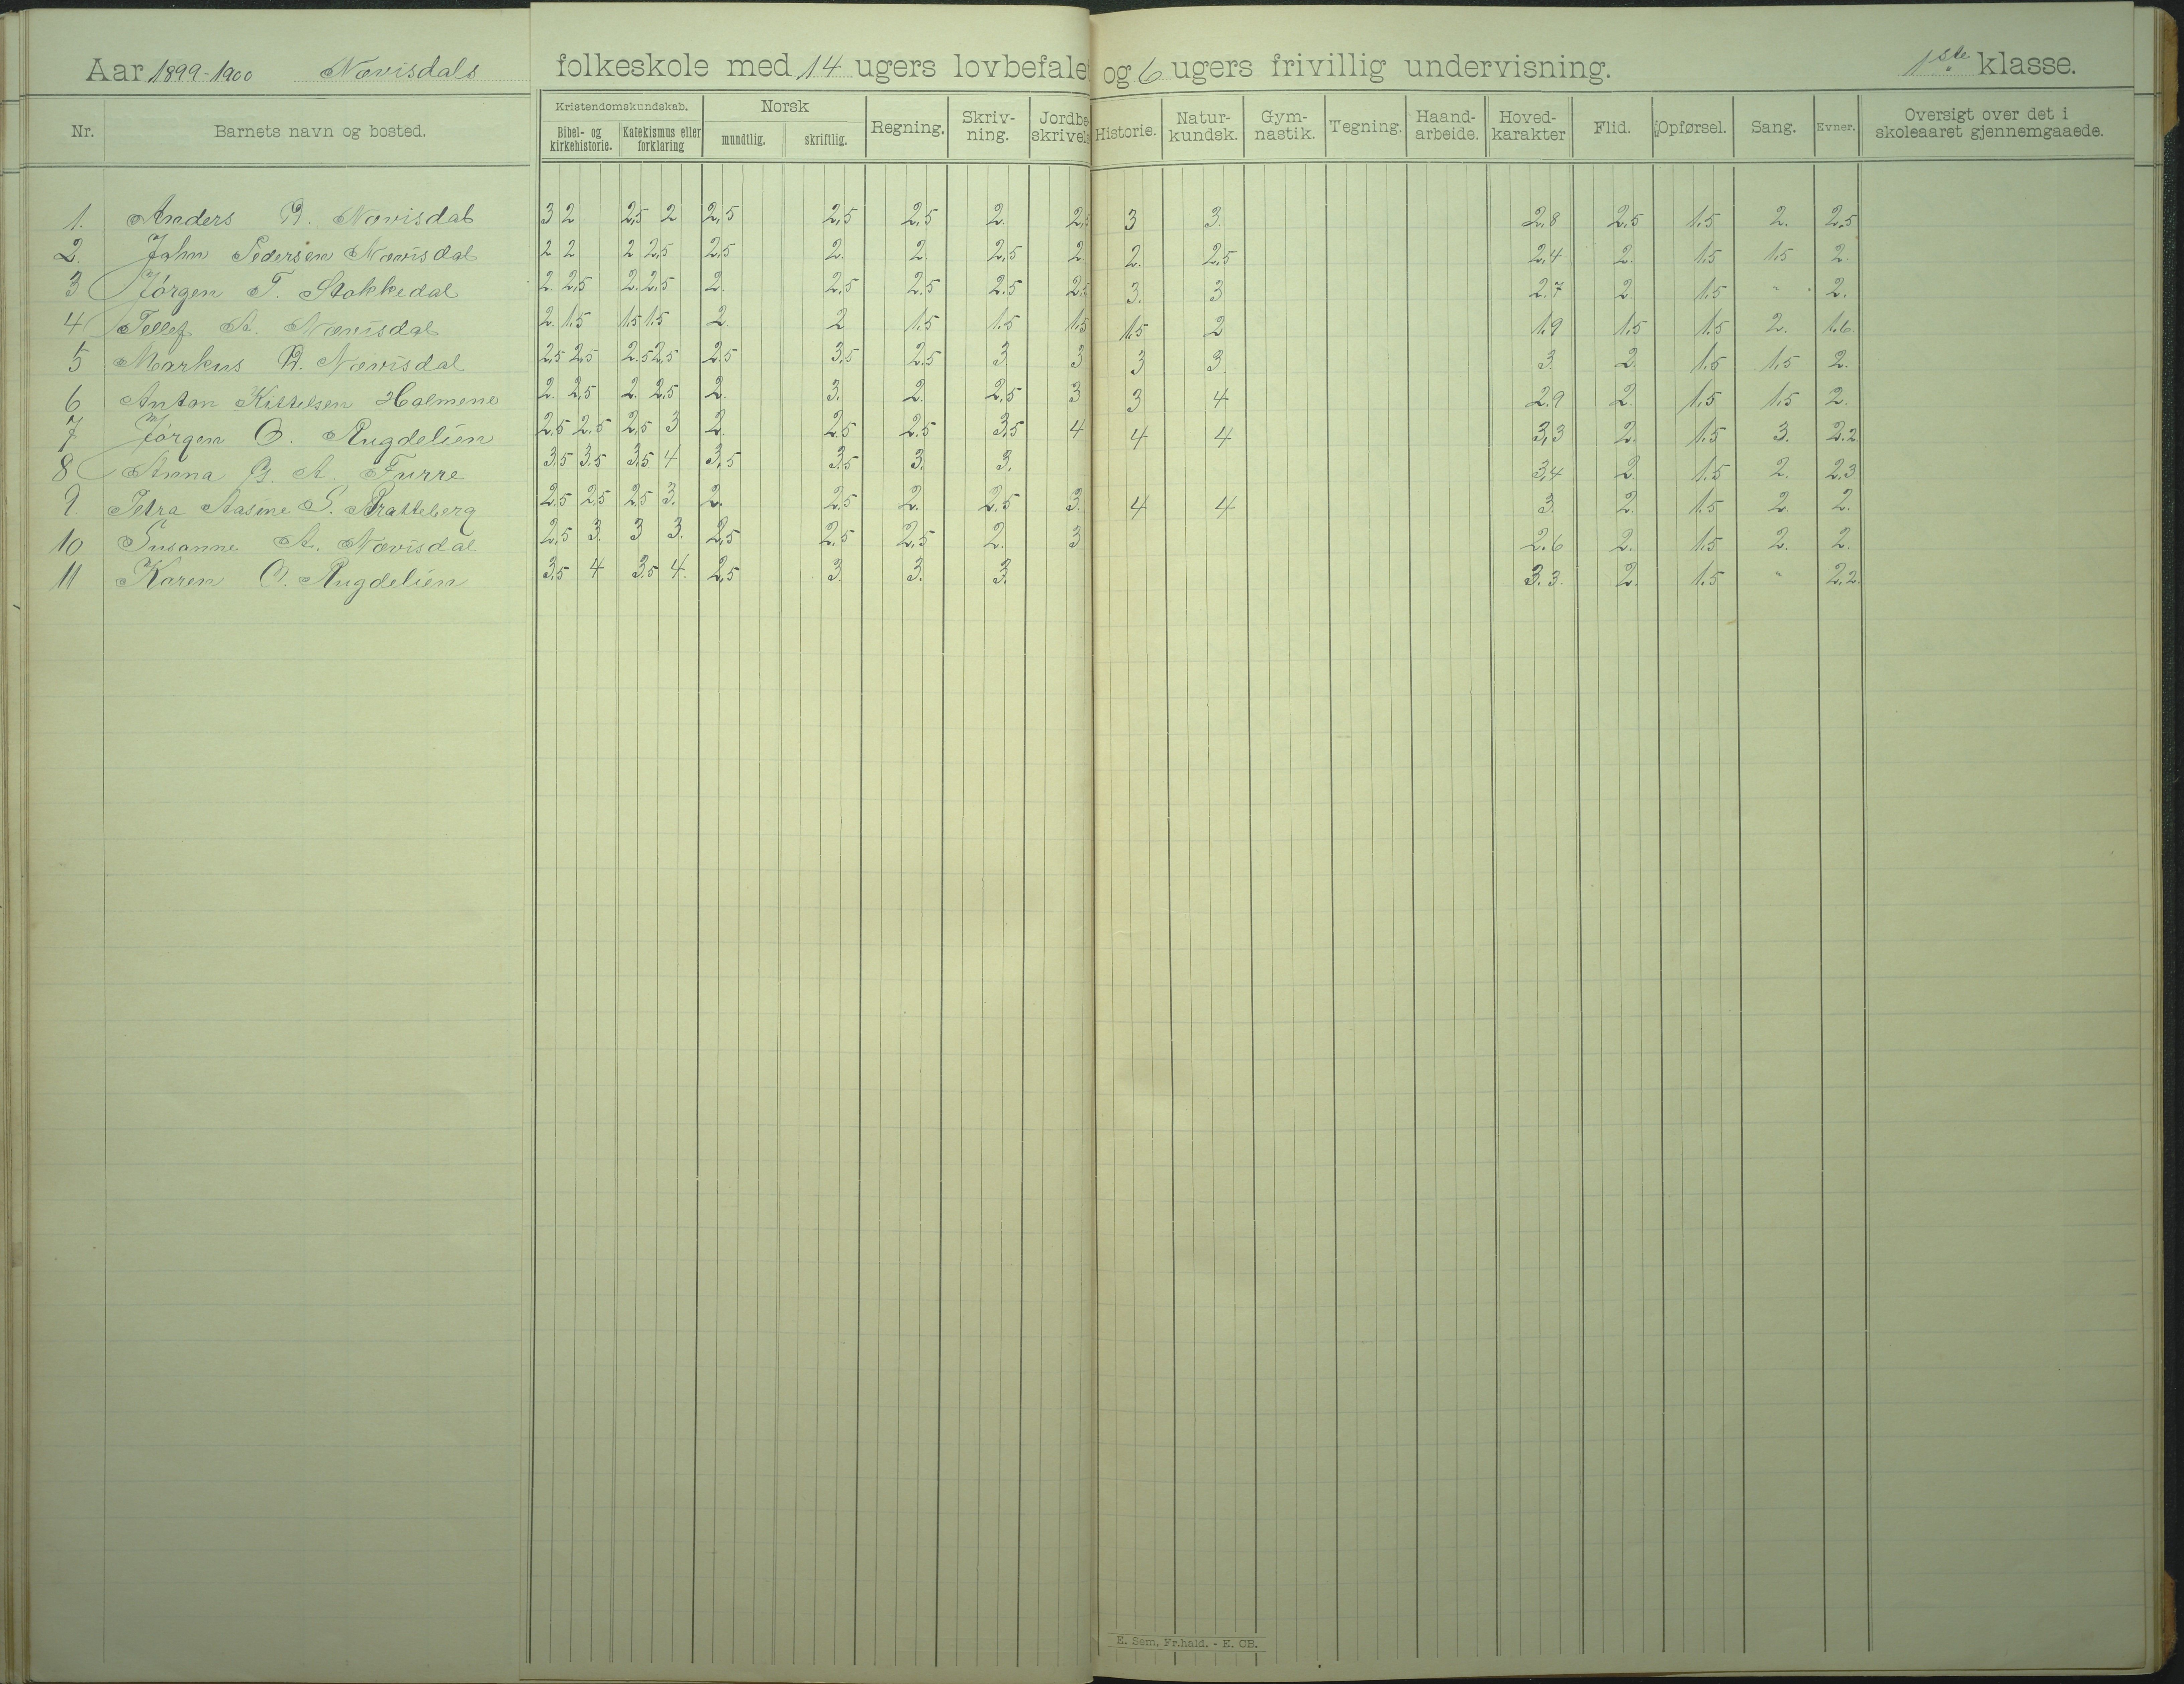 Aar 1899-1900 Nævisdals folkeskole med 14 ugers lovbefale og 6 ugers frivillig undervisning. 1ste klasse.
Nr. Barnets navn og bosted. Kristendomskundskab. Bibel- og kirkehistorie. Katekismus eller forklaring Norsk mundtlig. skriftlig. Regning. Skriv-ning. Jordbe-skrivels Historie. Natur-kundsk. Gym-nastik. Tegning. Haand-arbeide. Hoved-karakter Flid. Opførsel. Sang. Evner. Oversigt over det i skoleaaret gjennemgaaede.
1. Anders B. Nævisdal 3 2 2,5 2 2,5 2,5 2,5 2. 2,5 3 3. 2,8 2,5 1.5 2. 2,5
2. John Pedersen Nævisdal 2 2 2 2,5 2,5 2. 2. 2,5 2 2. 2,5 2,4 2. 1.5 1.5 2.
3 Jørgen T. Stokkedal 2. 2,5 2. 2,5 2. 2,5 2,5 2,5 2,5 3. 3 2.7 2. 1.5 " 2.
4 Tellef A. Nævisdal 2. 1.5 1.5 1.5 2. 2 1.5 1.5 1.5 1.5 2 1.9 1.5 1.5 2. 1.6.
5 Markus B. Nævisdal 2,5 2,5 2.5 2,5 2,5 3,5 2,5 3. 3 3 3 3. 2. 1.5 1.5 2.
6 Anton Kittelsen Holmene 2. 2,5 2. 2,5 2. 3. 2. 2,5 3 3 4 2.9 2. 1.5 1.5 2.
7 Jørgen O. Rugdelien 2,5 2.5 2,5 3 2. 2,5 2.5 3,5 4 4 4 3,3 2. 1.5 3. 2.2
8 Anna B. A. Furre 3.5 3.5 3.5 4 3,5 3,5 3. 3. 3,4 2. 1.5 2. 2.3
9. Petra Aasine S. Bratteberg 2,5 2,5 2,5 3. 2. 2,5 2. 2,5 3. 4 4 3. 2. 1.5 2. 2.
10 Susanne A. Nævisdal 2,5 3. 3 3. 2,5 2.5 2,5 2. 3 2.6 2. 1.5 2. 2.
11 Karen O. Rugdelien 3,5 4 3.5 4. 2,5 3. 3. 3. 3.3. 2. 1.5 " 2,2.
E. Sem, Fr.hald. - E. CB.